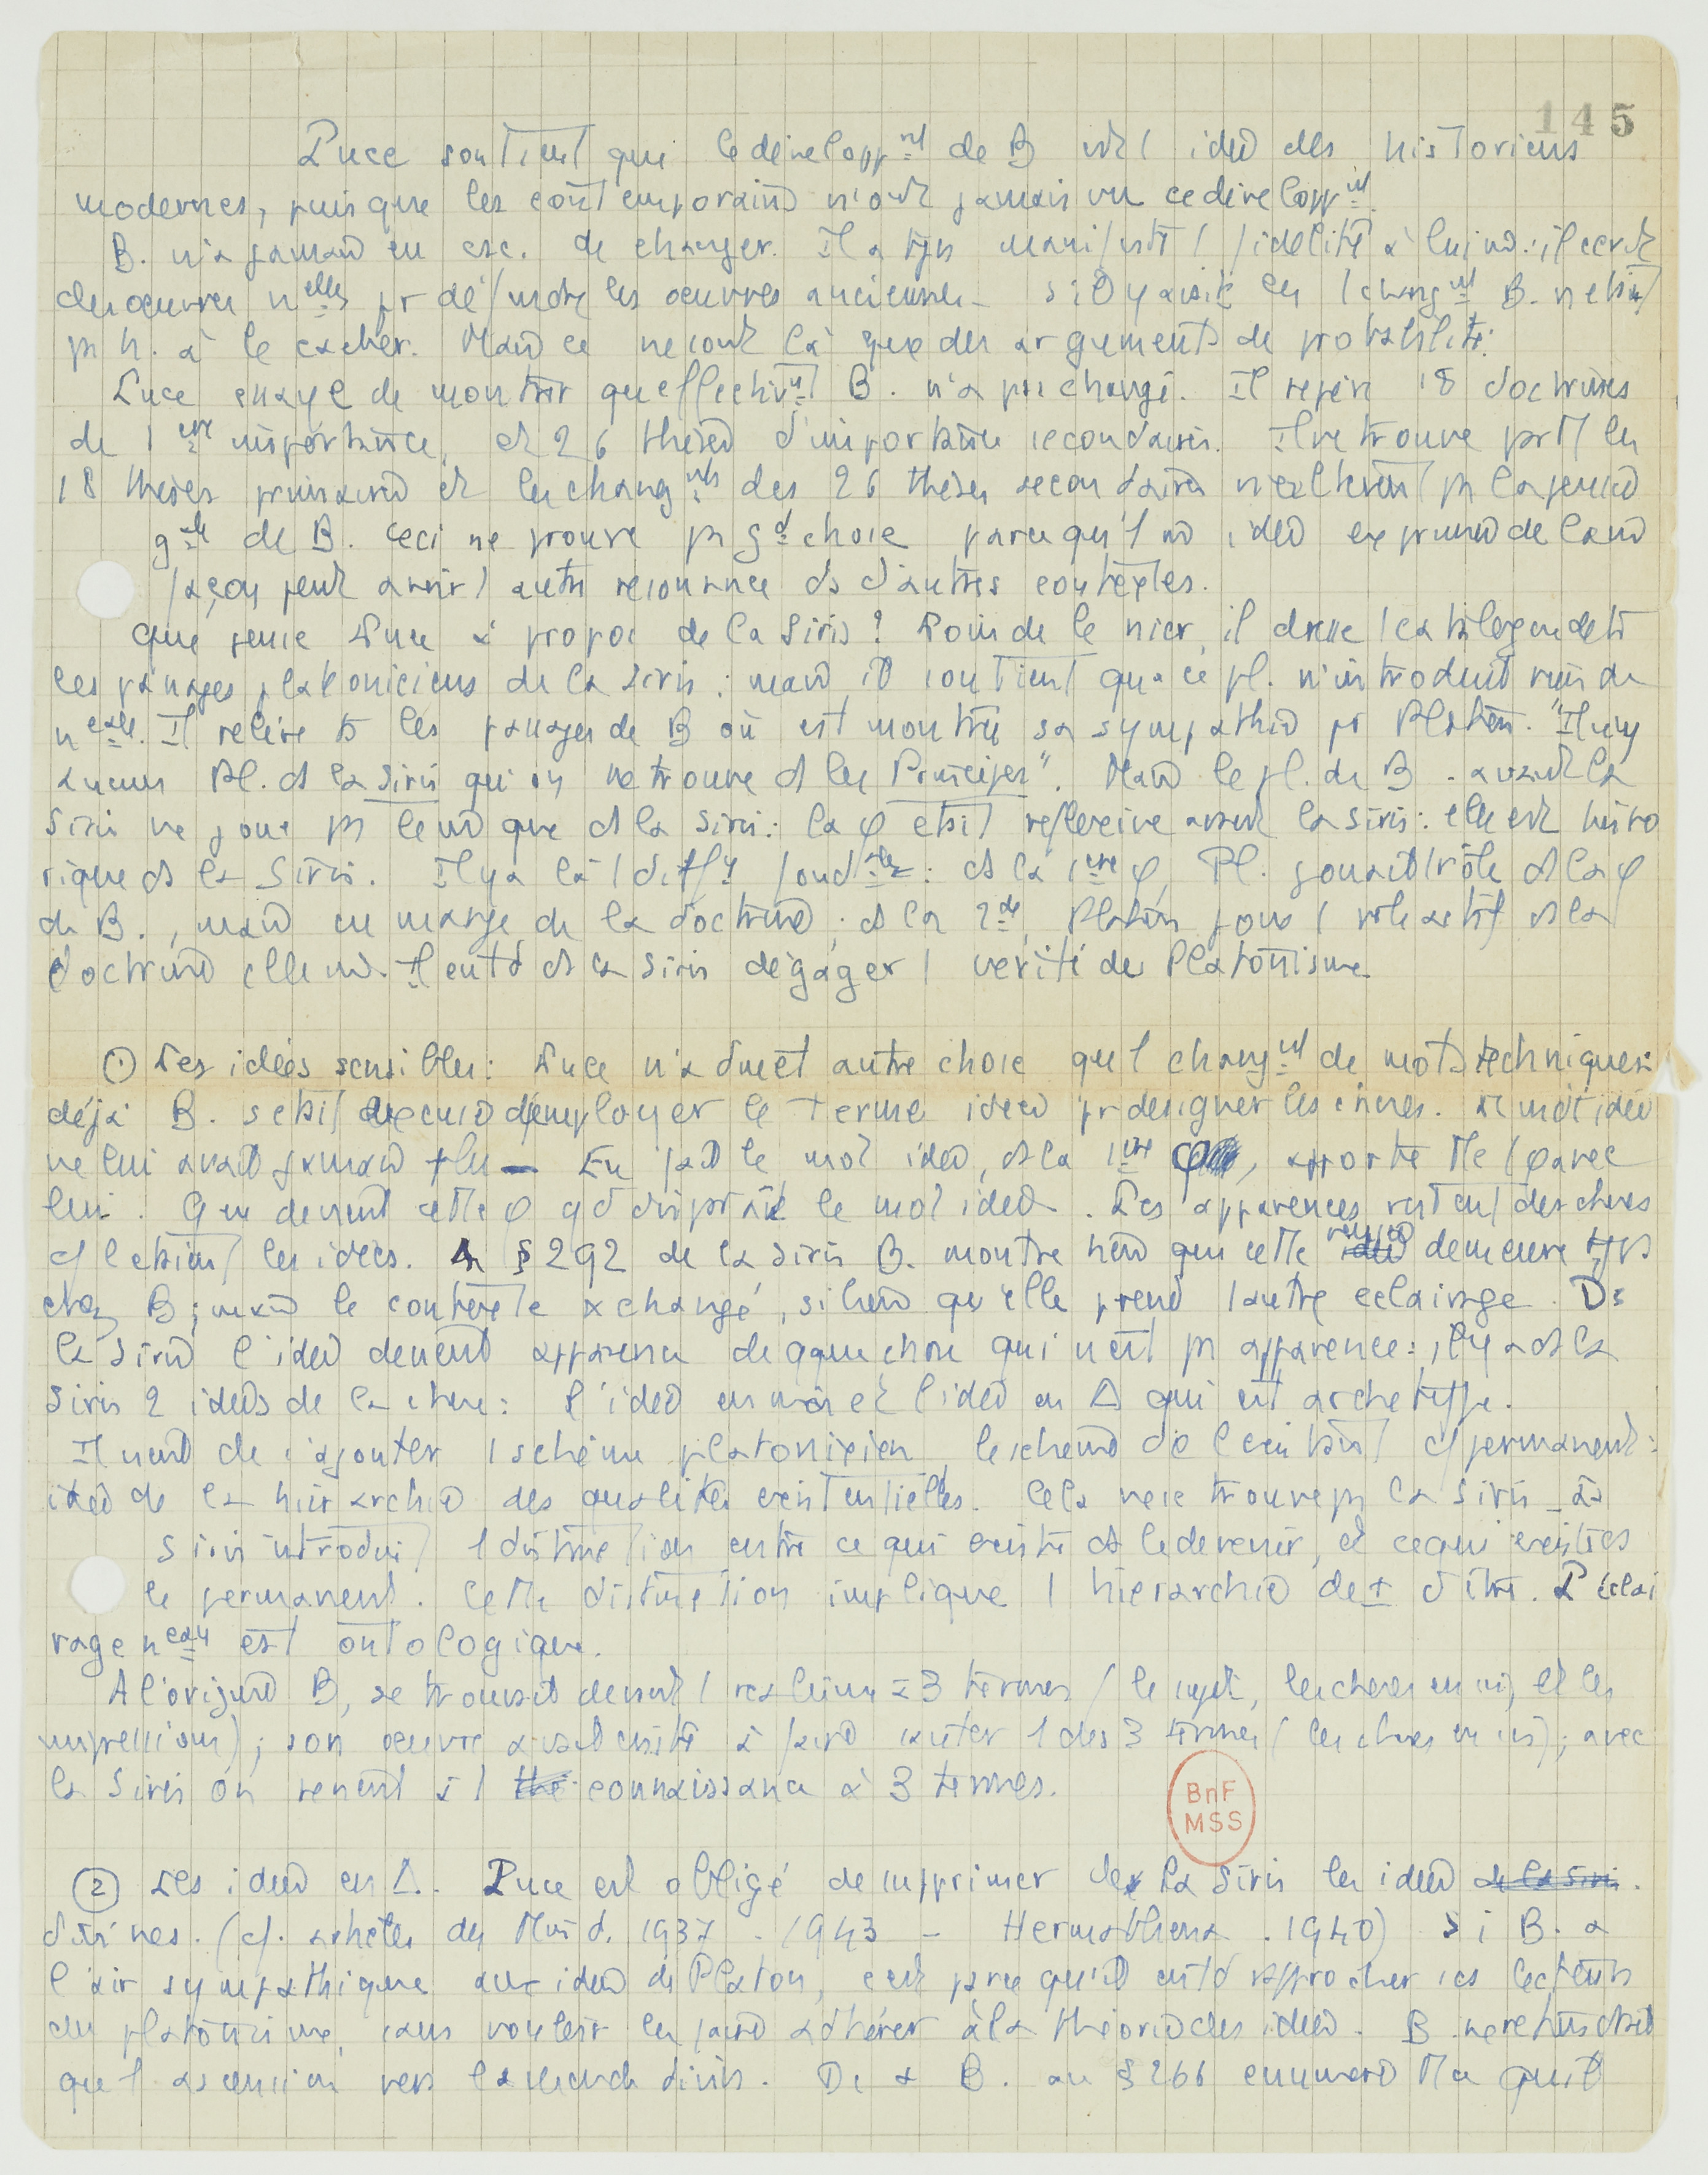 145
Luce soutient que le développ^nt de B est 1 idée des historiens
modernes, puisque les contemporains n'ont jamais vu ce développ^nt.
B. n'a jamais eu csc. de changer. Il a tjrs manifesté 1 fidélité à lui m̂: il écrit
des œuvres n^elles pr défendre les œuvres anciennes - s'il y avait eu 1 chang^nt B. n'était
ps h. à le cacher. Mais ce ne sont là que des arguments de probabilité.
Luce essaye de montrer qu'effectiv^nt B. n'a pas changé. Il repère 18 doctrines
de 1^ère importance, et 26 thèses d'importance secondaires. Il retrouve prtt les
18 thèses primaires et les chang^nts des 26 thèses secondaires n'altèrent ps la pensée
g^ale de B. Ceci ne prouve ps gd chose parce qu'1 m̂ idée exprimée de la m̂
façon peut avoir 1 autre résonance ds d'autres contextes.
Que pense Luce à propos de la Siris ? Loin de le nier, il dresse 1 catalogue de ts
les passages platoniciens de la Siris ; mais il soutient que ce pl. n'introduit rien de
n^eau. Il relève ts les passages de B où est montrée sa sympathie pr Platon. "Il n'y
aucun Pl. ds la Siris qu'on ne trouve ds les Principes". Mais le pl. de B. avant la
Siris ne joue ps le m̂ que ds la Siris : la φ était réflexive avant la Siris : elle est histo
rique ds la Siris. Il y a là 1 diff. fond^ale : ds la 1^ère φ, Pl. jouait 1 rôle ds la φ
de B., mais en marge de la doctrine ; ds la 2^de, Platon joue 1 rôle actif ds la
doctrine elle m̂. Il entd ds la Siris dégager 1 vérité du Platonisme.
① Les idées sensibles : Luce n'admet autre chose qu'1 chang^nt de mots techniques :
déjà B. s'était excusé d'employer le terme idée pr désigner les choses. Le mot idée
ne lui avait jamais plu - En fait le mot idée, ds la 1^ère φ, apporte tte 1 φ avec
lui. Que devient cette φ qd disparaît le mot idée. Les apparences restent des choses
cf l'étaient les idées. § 292 de la Siris B. montre bien que cette pensée demeure tjrs
chez B ; mais le contexte a changé, si bien qu'elle prend 1 autre éclairage. Ds
la Siris l'idée devient apparence de qque chose qui n'est ps apparence : il y a ds la
Siris 2 idées de la chose : l'idée en moi et l'idée en Δ qui est archétype.
Il vient de s'ajouter 1 schéma platonicien, le schéma de l'existant cf permanent :
idée de la hiérarchie des qualités existentielles. Cela ne se trouve ps la Siris - La
Siris introduit 1 distinction entre ce qui existe ds le devenir, et ce qui existe ds
le permanent. Cette distinction implique 1 hiérarchie de ± d'être. L'éclai
rage n^eau est ontologique.
A l'origine B, se trouvait devant 1 réalisme à 3 termes (le sujet, les choses en soi, et les
impressions) ; son œuvre avait consisté à faire sauter 1 des 3 termes (les choses en soi) ; avec
la Siris on revient à 1 connaissance à 3 termes.
② Les idées en Δ. Luce est obligé de supprimer de la Siris les idées de la Siris.
divines. (cf. articles du Mind. 1937 - 1943 - Hermathena . 1940) Si B. a
l'air sympathique aux idées de Platon, c'est parce qu'il entd rapprocher ses lecteurs
du platonisme, sans vouloir les faire adhérer à la théorie des idées. B. ne
qu'1 ascension vers la divin. Ds B. au § 266 énumère tt ce qu'il
BnF
MSS